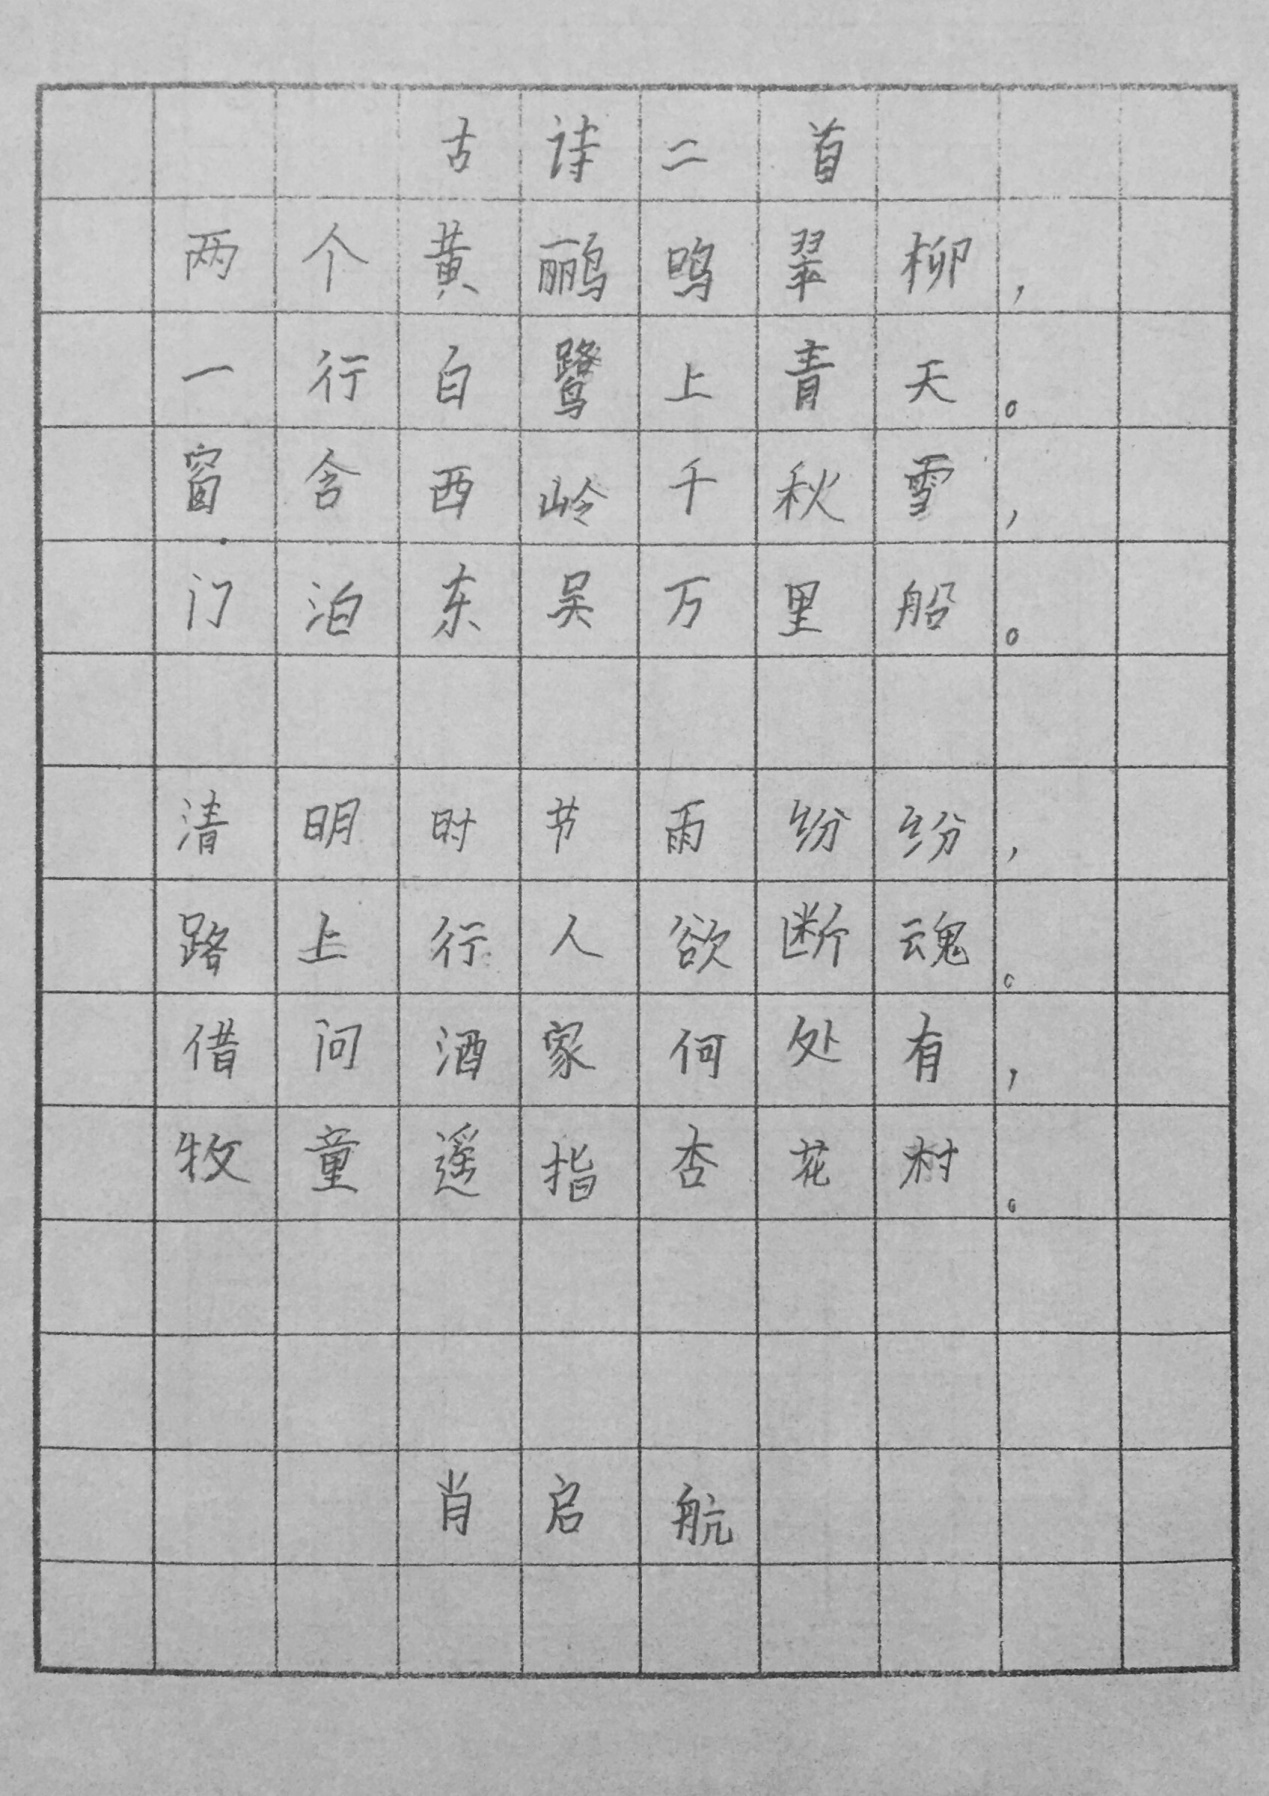 古诗二首
两个黄鹂鸣翠柳，
一行白鹭上青天。
窗含西岭千秋雪，
门泊东吴万里船。
清明时节雨纷纷，
路上行人欲断魂。
借问酒家何处有，
牧童遥指杏花村。
肖启航